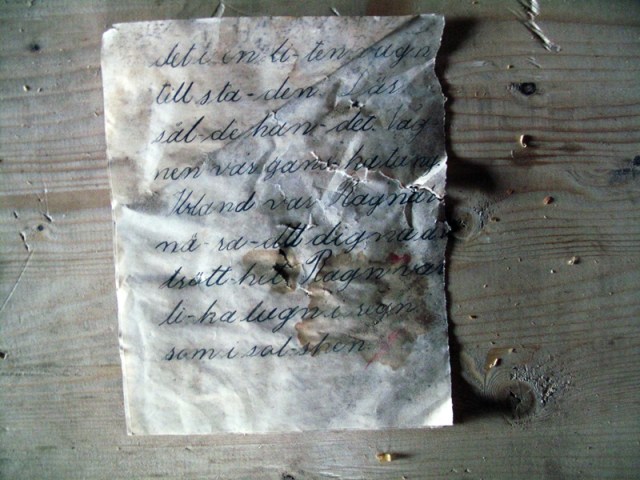 det i en li-ten vagn
till sta-den. Där
sål-de han det. Vag
nen var gans-ka tung
Ibland var Ragnar
nä-ra att digna av
trött-het. Ragn var
li-ka lugn i regn
som i sol-sken